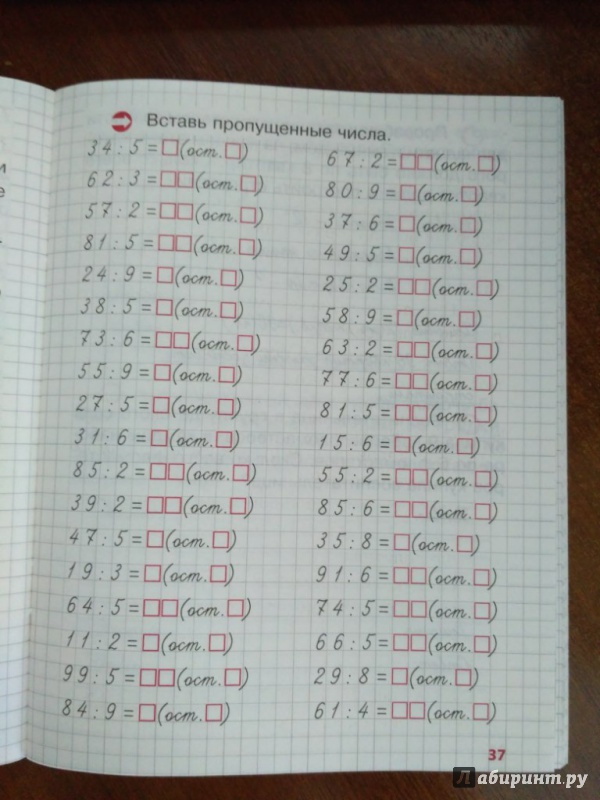 Вставь пропущенные числа.
34 : 5 = □ (ост. □)
62 : 3 = □□ (ост. □)
57 : 2 = □□ (ост. □)
81 : 5 = □□ (ост. □)
24 : 9 = □ (ост. □)
38 : 5 = □ (ост. □)
73 : 6 = □□ (ост. □)
55 : 9 = □ (ост. □)
27 : 5 = □ (ост. □)
31 : 6 = □ (ост. □)
85 : 2 = □□ (ост. □)
39 : 2 = □□ (ост. □)
47 : 5 = □ (ост. □)
19 : 3 = □ (ост. □)
64 : 5 = □□ (ост. □)
11 : 2 = □ (ост. □)
99 : 5 = □□ (ост. □)
84 : 9 = □ (ост. □)
67 : 2 = □□ (ост. □)
80 : 9 = □ (ост. □)
37 : 6 = □ (ост. □)
49 : 5 = □ (ост. □)
25 : 2 = □□ (ост. □)
58 : 9 = □ (ост. □)
63 : 2 = □□ (ост. □)
77 : 6 = □□ (ост. □)
81 : 5 = □□ (ост. □)
15 : 6 = □ (ост. □)
55 : 2 = □□ (ост. □)
85 : 6 = □□ (ост. □)
35 : 8 = □ (ост. □)
91 : 6 = □□ (ост. □)
74 : 5 = □□ (ост. □)
66 : 5 = □□ (ост. □)
29 : 8 = □ (ост. □)
61 : 4 = □□ (ост. □)
37
Лабиринт.ру